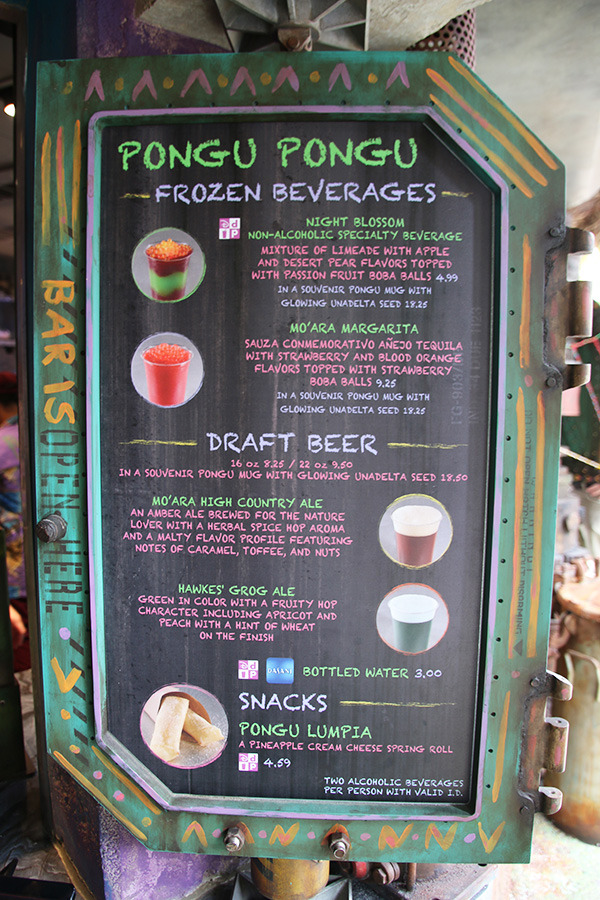 PONGU PONGU
FROZEN BEVERAGES
NIGHT BLOSSOM
NON-ALCOHOLIC SPECIALTY BEVERAGE
MIXTURE OF LIMEADE WITH APPLE
AND DESERT PEAR FLAVORS TOPPED
WITH PASSION FRUIT BOBA BALLS 4.99
IN A SOUVENIR PONGU MUG WITH
GLOWING UNADELTA SEED 18.25
MO'ARA MARGARITA
SAUZA CONMEMORATIVO AÑEJO TEQUILA
WITH STRAWBERRY AND BLOOD ORANGE
FLAVORS TOPPED WITH STRAWBERRY
BOBA BALLS 9.25
IN A SOUVENIR PONGU MUG WITH
GLOWING UNADELTA SEED 18.25
DRAFT BEER
16 oz 8.25 / 22 oz 9.50
IN A SOUVENIR PONGU MUG WITH GLOWING UNADELTA SEED 18.50
MO'ARA HIGH COUNTRY ALE
AN AMBER ALE BREWED FOR THE NATURE
LOVER WITH A HERBAL SPICE HOP AROMA
AND A MALTY FLAVOR PROFILE FEATURING
NOTES OF CARAMEL, TOFFEE, AND NUTS
HAWKES' GROG ALE
GREEN IN COLOR WITH A FRUITY HOP
CHARACTER INCLUDING APRICOT AND
PEACH WITH A HINT OF WHEAT
ON THE FINISH
DASANI BOTTLED WATER 3.00
SNACKS
PONGU LUMPIA
A PINEAPPLE CREAM CHEESE SPRING ROLL
4.59
TWO ALCOHOLIC BEVERAGES
PER PERSON WITH VALID I.D.
BAR IS OPEN HERE